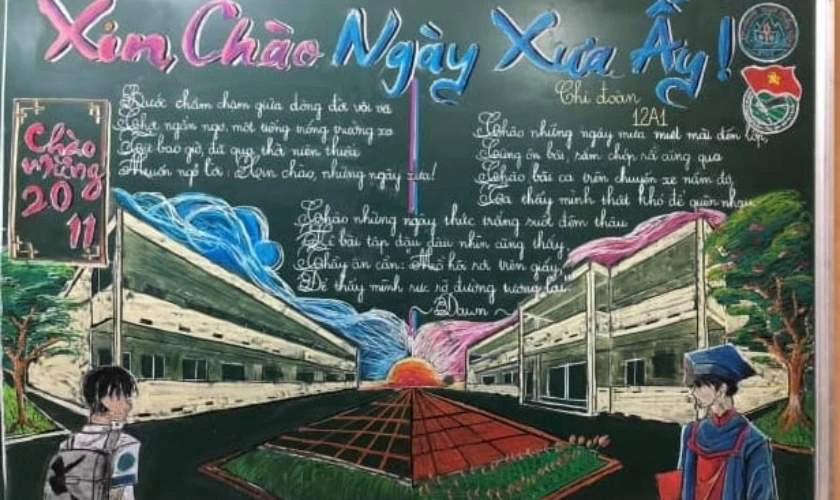 Xin Chào Ngày Xưa Ấy!
Chi đoàn
12A1
Chào
mừng
20
11
Bước chầm chậm giữa dòng đời vội vã
Chợt ngẩn ngơ, một tiếng trống trường xa
bao giờ, đã qua thời niên thiếu
Muốn ngỏ lời: Xin chào, những ngày xưa!
Chào những ngày mưa miệt mài đến lớp,
Cùng ôn bài, sấm chớp rồi cũng qua
Chào bài ca trên chuyến xe năm đó,
Ta thấy mình thật khó để quên nhau
Chào những ngày thức trắng suốt đêm thâu
Vì bài tập đâu đâu nhìn cũng thấy,
Thầy ân cần: "Mồ hôi rơi trên giấy,"
Để thấy mình rực rỡ dương tương lai.
~ Dawn ~